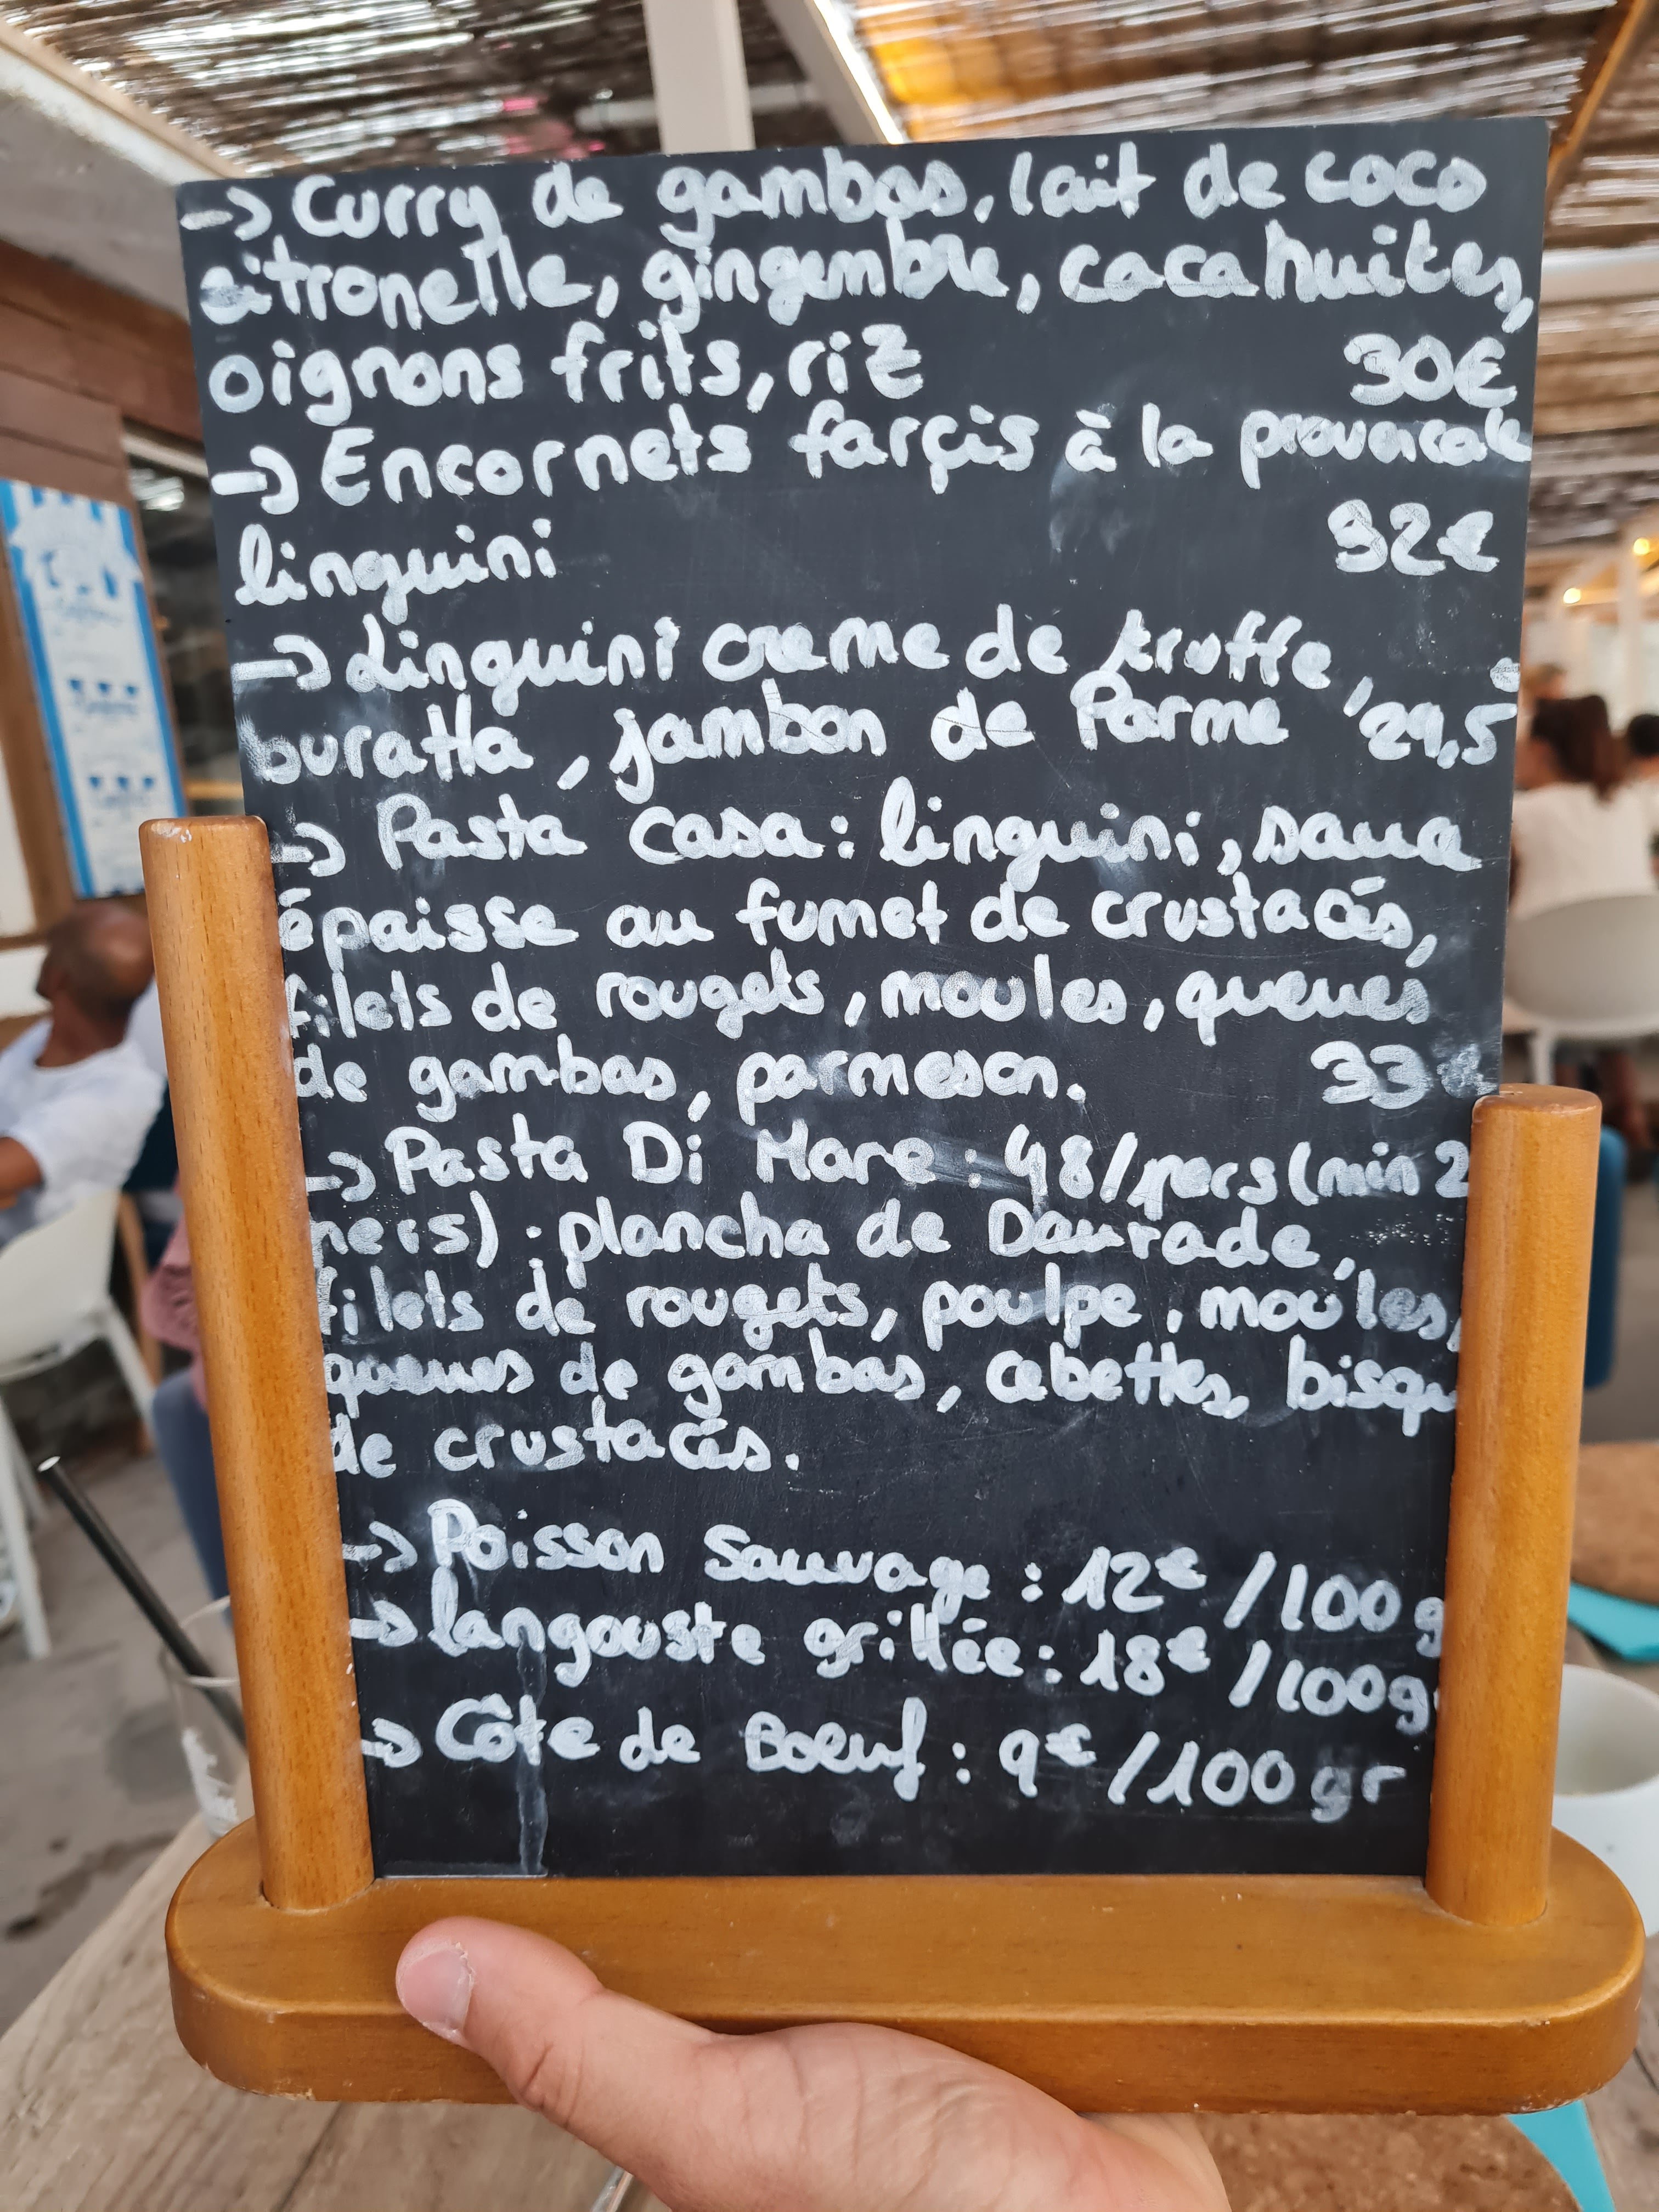 -> Curry de gambas, lait de coco
citronelle, gingembre, cacahuites,
oignons frits, riz 30€
-> Encornets farçis à la provencale
linguini 32€
-> Linguini creme de truffe,
buratta, jambon de Parme 29,5
-> Pasta Casa: linguini, sauce
épaisse au fumet de crustacés,
filets de rougets, moules, queues
de gambas, parmesan. 33
-> Pasta Di Mare: 48/pers (min 2
pers): plancha de Daurade,
filets de rougets, poulpe, moules,
queues de gambas, cebettes, bisqu
de crustacés.
-> Poisson Sauvage: 12€ /100 g
-> langouste grillée: 18€ /100g
-> Côte de Boeuf: 9€ /100 gr